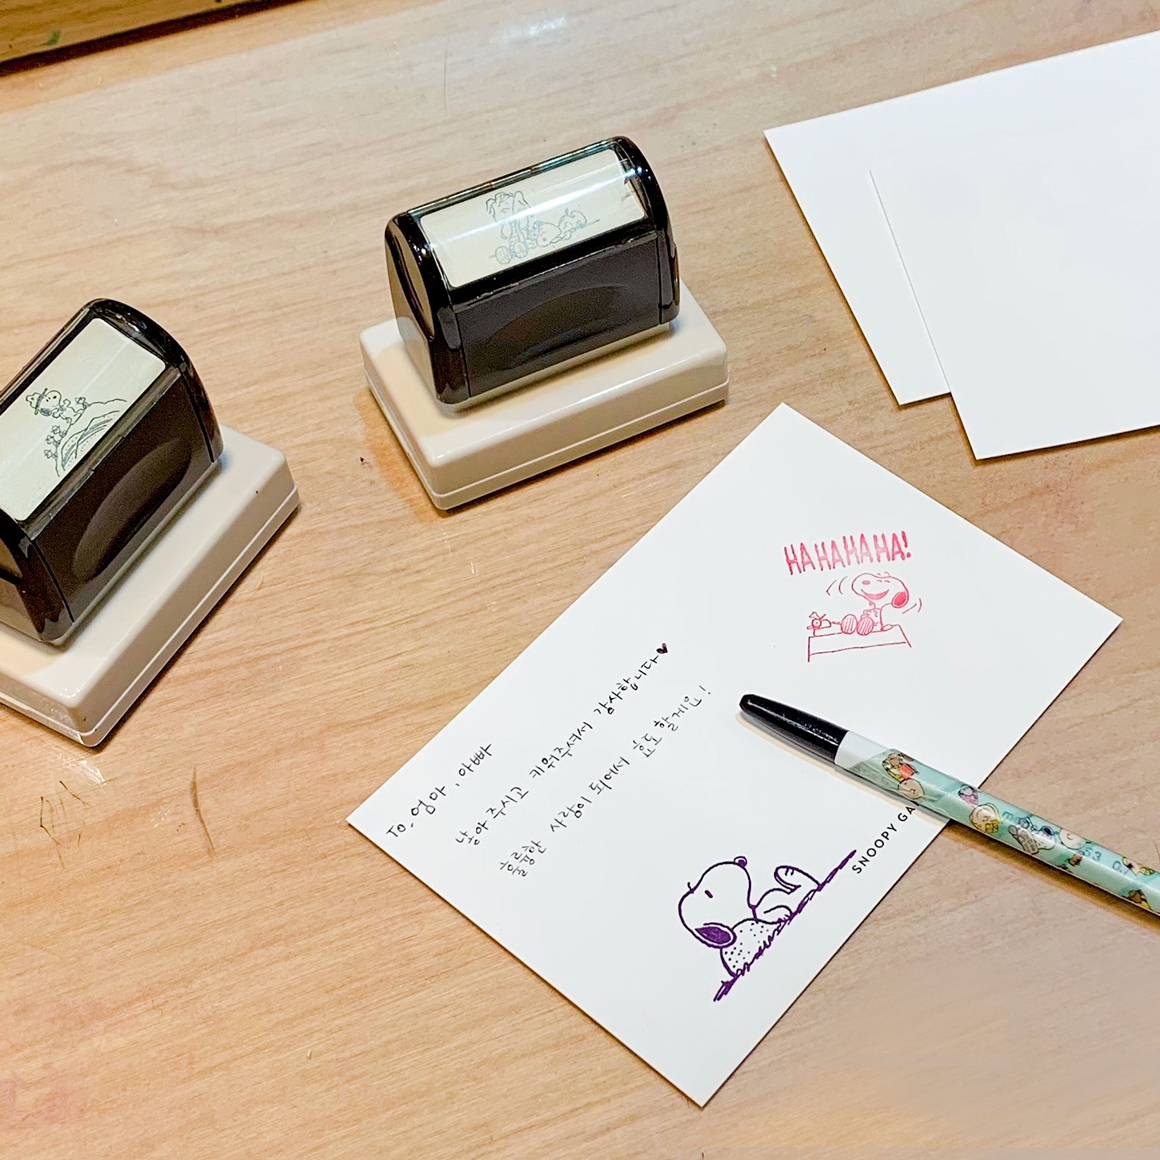 HA HA HA HA!
To. 엄마, 아빠
낳아 주시고 키워주셔서 감사합니다♥
훌륭한 사람이 되어서 효도 할게요!
SNOOPY GA